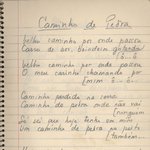 Caminho de Pedra
Velho caminho por onde passou
Carro de boi, boiadeiro gritando
ô... ô
Velho caminho por onde passou
O meu carinho chamando por
[mim ô... ô
Caminho perdido na serra
Caminho de pedra onde não vai
[ninguém
Só sei que hoje tenho em mim
Um caminho de pedra no peito
[também.